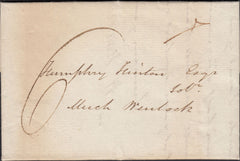 6
Humphry Hinton Esqr
Solr
Much Wenlock